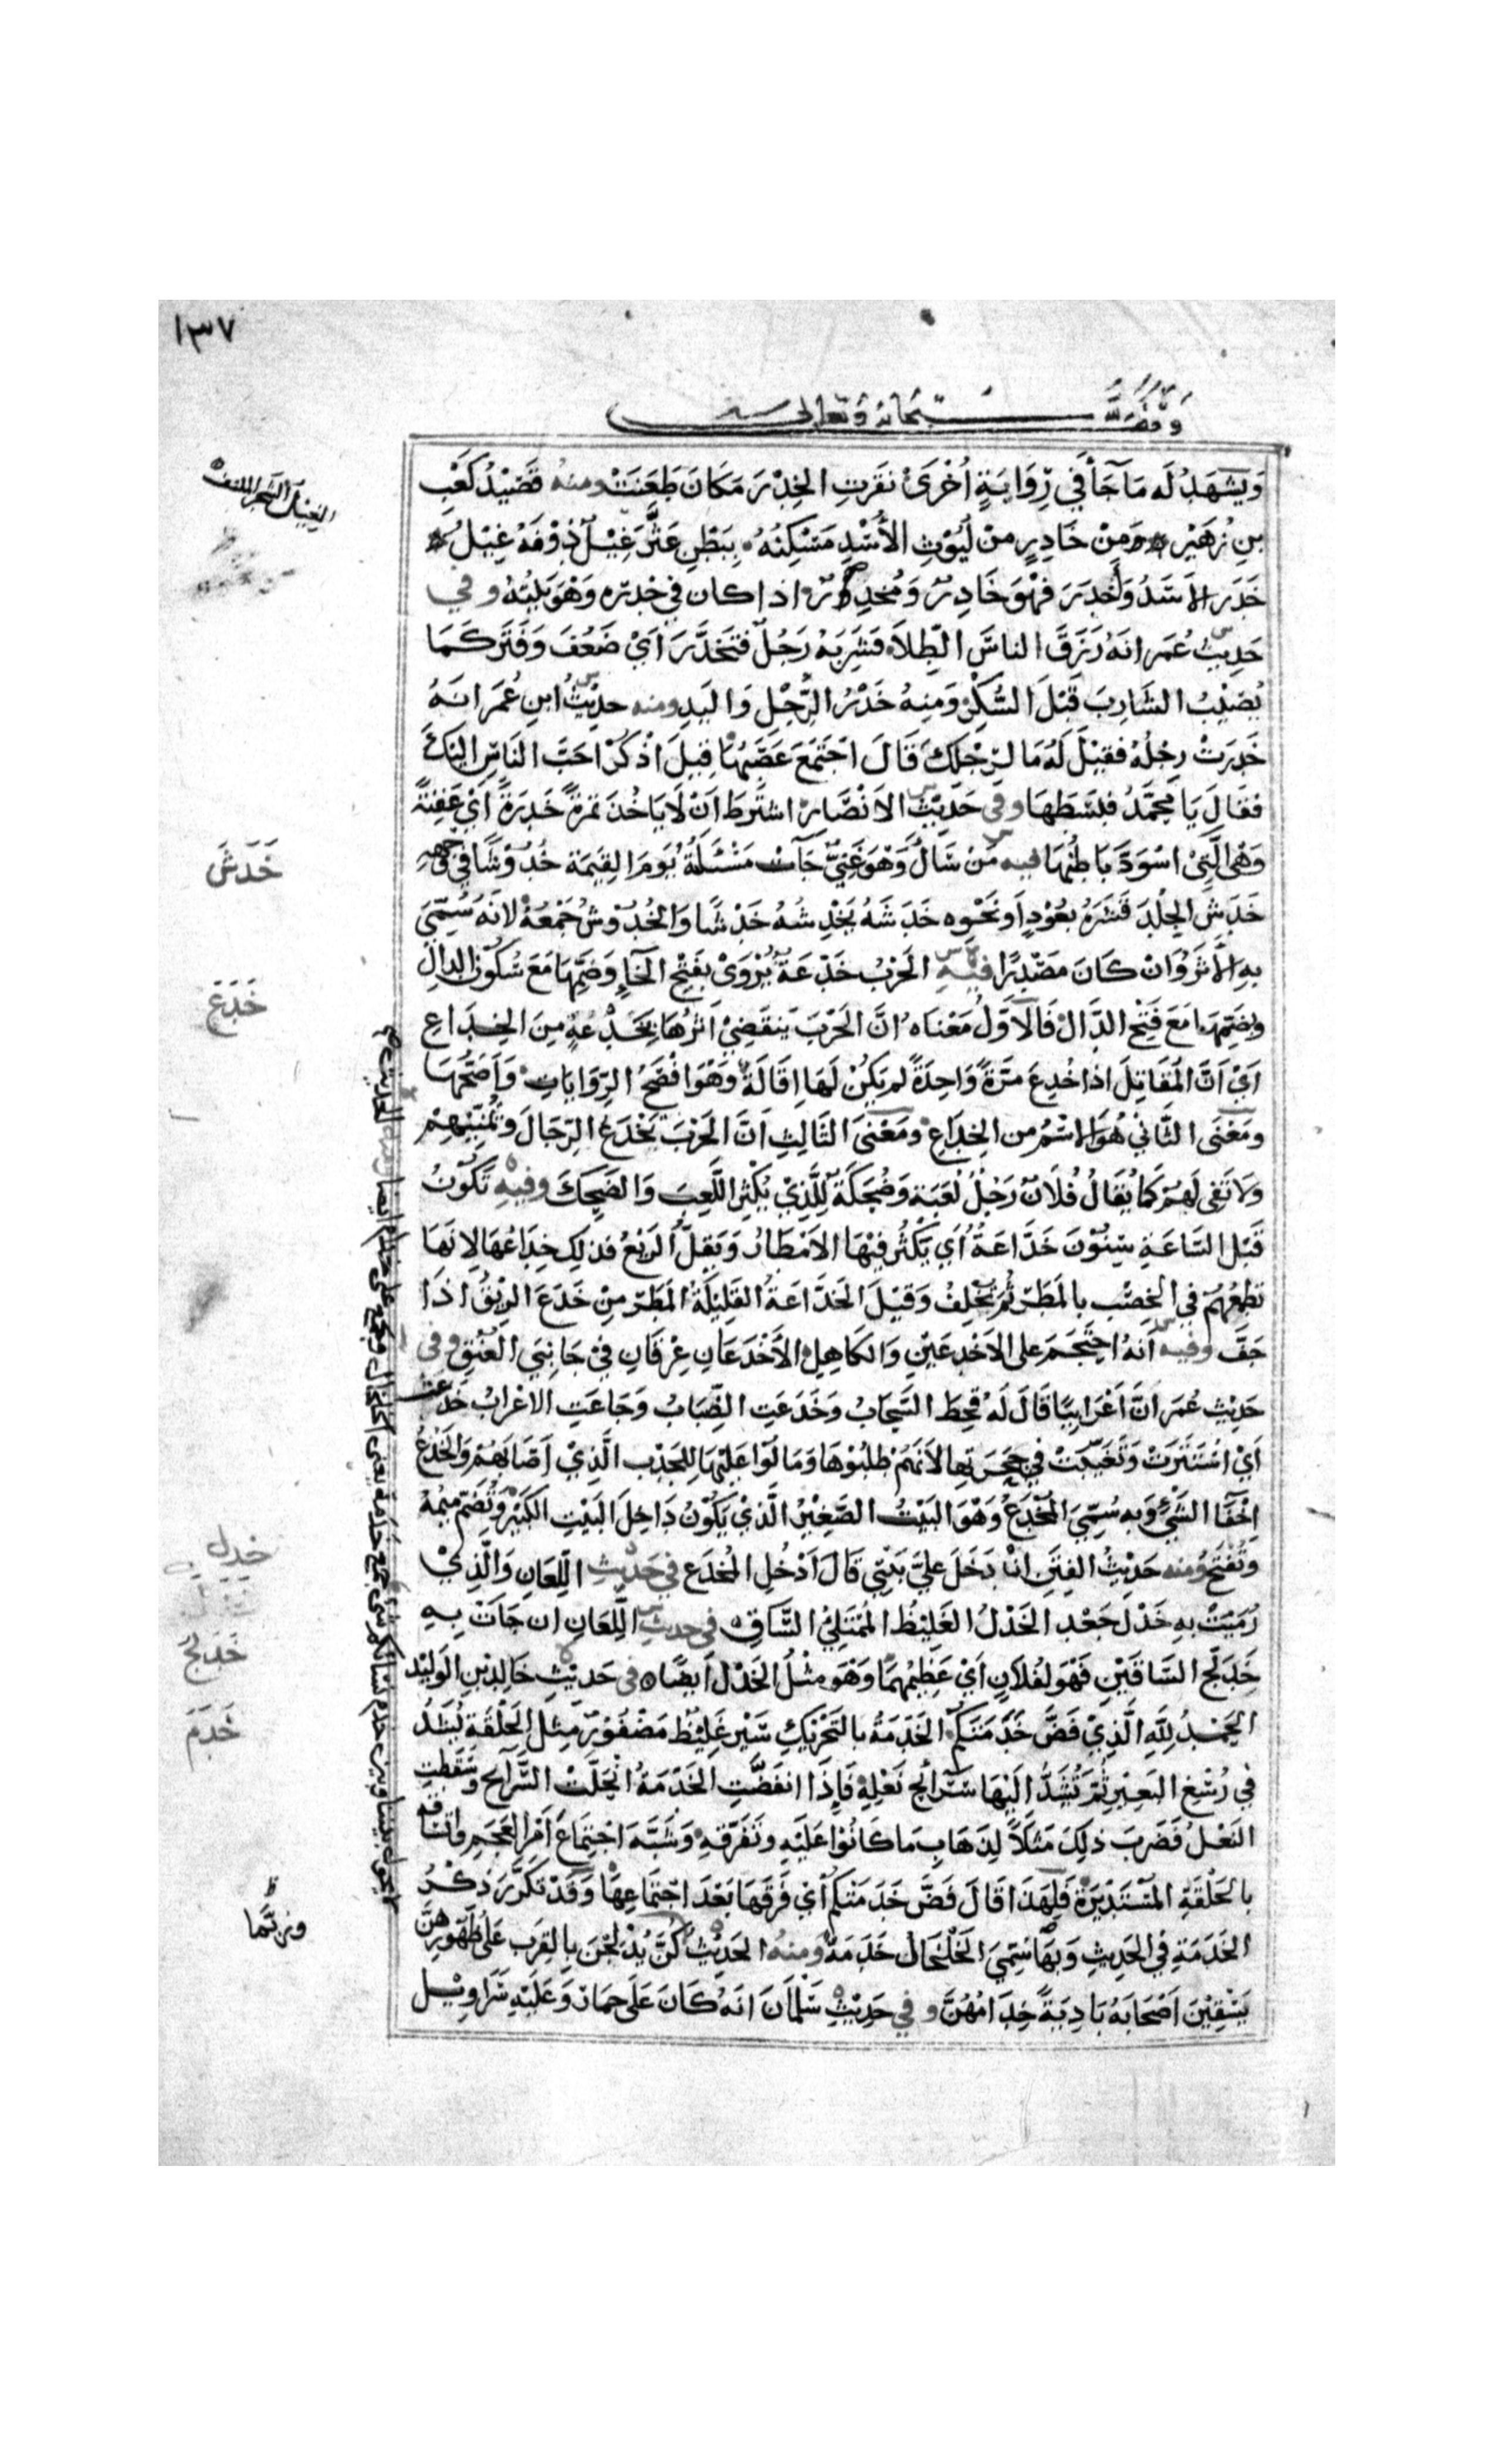 ١٣٧
وقف لله سبحانه وتعالى
الغيل الشجر الملتف
وَيَشْهَدُ لَه مَا جَآ فِي رِوَايَةٍ أُخْرَىٰ نَقَرَتِ الخِدْرَ مَكَانَ طَعَنَتْ ومنهُ قَصِيْدُ كَعْبِ
بنِ زُهَيْر ۞ مِنْ خَادِرٍ مِنْ لُيُوْثِ الأُسْدِ مَسْكِنُهُ ۞ بِبَطْنِ عَثَّرَ غِيْلٌ دُوْنَهُ غِيْلُ ۞
خَدَرَ الاَسَدُ وَأَخْدَرَ فَهْوَ خَادِرٌ وَمُخْدِرٌ اذا كان في خِدْرِه وَهْوَ بَيْتُهُ وفي
حَدِيثِ عُمَر انهُ رَزَقَ الناسَ الطِّلاَ فَشَرِبَهُ رَجُلٌ فَتَخَدَّرَ اَيْ ضَعُفَ وَفَتَر كَمَا
يُصِيْبُ الشَارِبَ قَبْلَ السُّكْرِ وَمِنهُ خَدَرُ الرِّجْلِ وَاليَدِ ومنه حدِيْثُ ابنِ عُمَر انهُ
خَدِرَتْ رِجْلُهُ فقِيْلَ لَهُ مَا لِرِجْلِكَ قَالَ اجْتَمَعَ عَصَبُهَا قِيلَ اذْكُرْ احَبَّ النَاسِ اليْكَ
فقَالَ يَا مُحمَّدُ فبَسَطَهَا وفي حَدِيْثِ الاَنْصَارِ اشتَرَطَ اَنْ لَا يَاخُذَ تمرَةً خَدِرَةً اَيْ عَفِنَةً
وَهْى الَّتِيْ اسْوَدَّ بَاطِنُهَا فيه مَنْ سَالَ وَهْوَ غَنِيٌّ جَآتْ مَسْئَلَتُهُ يَومَ القِيٰمَة خُدُوْشًا في وَجْهِهِ
خَدَشَ الجِلْدَ قَشَرَهُ بعُوْدٍ اَو نَحْوِه خَدَشَهُ يَخْدِشُهُ خَدْشًا وَالخُدُوْشُ جَمْعُهُ لانهُ سُمِّيَ
بهِ الأَثَرُ وَان كَانَ مَصْدَرًا فيهِ الحَرْبُ خَدْعَةٌ يُرْوَىٰ بفَتْحِ الخَآءِ وَضَمِّهَا مَعَ سُكُوْنِ الدالِ
وبضَمِّهَا مَعَ فَتْحِ الدَّالِ فَالاَوَّلُ مَعْنَاه انَّ الحَرْبَ يَنقَضِيْ اَمْرُهَا بِخَدْعَةٍ مِنَ الخِدَاعِ
اَيْ اَنَّ المُقَاتِلَ اذَا خُدِعَ مَرَّةً وَاحِدَةً لم يَكُنْ لَهَا اِقَالَةٌ وَهْوَ افْصَحُ الرِّوَايَاتِ وَاَصَحُّهَا
ومَعْنَى الثَّانيْ هُوَ الاسْمُ من الخِدَاعِ ومَعْنَى الثَالِثِ انَّ الحَرْبَ تَخْدَعُ الرِّجَالَ وَتُمَنِّيْهِمْ
وَلَا تَفِى لَهُمْ كمَا يُقَالُ فُلاَنٌ رَجُلٌ لُعَبَة وَضُحَكَةٌ لِلَّذِيْ يُكْثِرُ اللَّعِبَ وَالضَّحِكَ وفيهِ تَكُوْنُ
قَبْلَ السَّاعَةِ سِنُوْنَ خَدَّاعَةٌ أَي يَكْثُرُ فيْهَا الاَمْطَارُ وَيَقِلُّ الرَيْعُ فذلِك خِدَاعُهَا لاِنهَا
تُطمِعُهُمْ في الخِصْبِ بالمَطَرِ ثُمَّ تُخْلِفُ وَقِيْلَ الخَدَّاعَةُ القَلِيْلَةُ المَطَرِ مِنْ خَدَعَ الرِّيْقُ اذَا
جَفَّ وفيه اَنهُ احتَجَمَ على الاَخْدَعَيْنِ وَالكَاهِلِ الأَخْدَعَانِ عِرْقَانِ فيْ جَانِبَيِ العُنُقِ وفى
حَدِيْثِ عُمَر اَنَّ اَعْرَابِيًّا قَالَ لَهُ قَحِطَ السَّحَابُ وَخَدَعَتِ الضِّبَابُ وَجَاعَتِ الاعْرَابُ خَدَعَتْ
اَيْ اسْتَتَرَتْ وَتَغَيَّبَتْ في جِحَرَتِهَا لاَنَهُمْ طَلَبُوْهَا وَمَالُوْا عَلَيْهَا لِلجَدْبِ الَّذِيْ اَصَابَهُمْ وَالخَدْعُ
اخْفَآ الشَيْئِ وَبه سُمِّيَ المُخْدَعُ وَهْوَ البَيْتُ الصَّغِيْرُ الَّذِيْ يَكُوْنُ دَاخِلَ البَيْتِ الكَبِيْرِ وَتُضَمُّ مِيْمُهُ
وتُفْتَحُ وَمنه حَدِيْثُ الفِتَنِ انْ دَخَلَ عَلَيَّ بَيْتِيْ قَالَ اَدْخُلِ المُخْدَعَ في حَدِيْثِ اللِّعَانِ وَالَّذِيْ
رُمِيَتْ بهِ خَدْلٌ جَعْد الخَدْلُ الغَلِيْظُ المُمْتَلِيْ السَّاقِ في حديثِ اللِّعَانِ ان جَاتْ بِهِ
خَدَلَّجَ السَّاقَيْنِ فَهْوَ لِفُلاَنٍ اَيْ عَظِيْمَهُمَا وَهْوَ مِثْلُ الخَدْلِ اَيضًا في حَديْثِ خَالِدِ بْنِ الوَلِيْد
الحَمْدُ لِلّهِ الَّذِيْ فَضَّ خَدَمَتَكُمْ الخَدَمَةُ بالتَحْرِيْكِ سَيْرٌ غَلِيْظٌ مَضْفُوْرٌ مِثل الحَلْقَةِ يُشَدُّ
في رُسْغِ البَعِيْرِ ثُمَّ تُشَدُّ اِلَيْهَا سَرَائحُ نَعْلِهِ فَاِذَا انفَضَّتِ الخَدَمَةُ انْحَلَّتْ السَّرَائِح وَسَقَطتِ
النَعْلُ فَضَرَبَ ذلِكَ مَثَلاً لِذَهَابِ مَا كَانُوْا عَلَيْهِ وتَفَرُّقِهِ وَشَبَّهَ اجْتِمَاعَ اَمْرِ العَجَمِ وَاتِّسَاقَه
بالحَلْقَةِ المُسْتَدِيْرَةِ فَلِهَذَا قَالَ فَضَّ خَدَمَتَكُمْ أَيْ فَرَّقَهَا بَعْدَ اجْتِمَاعِهَا وَقَدْ تَكَرَّرَ ذِكْرُ
الخَدَمَةِ في الحَدِيثِ وَبِهَا سُمِّيَ الخَلْخَالُ خَدَمَةً ومنهُ الحَدِيْثُ كُنَّ يُدْلِجْنَ بِالقِرَبِ عَلَى ظُهُوْرِهِنَّ
يَسْقِيْنَ اَصْحَابَهُ بَادِيَةً خِدَامُهُنَّ وفي حَدِيْثِ سَلْمَانَ انهُ كَانَ عَلَى حِمَارٍ وَعَلَيْهِ سَرَاوِيْل
خَدَشَ
خَدَعَ
خدل
خَدَلَجَ
خَدَمَ
وربّما